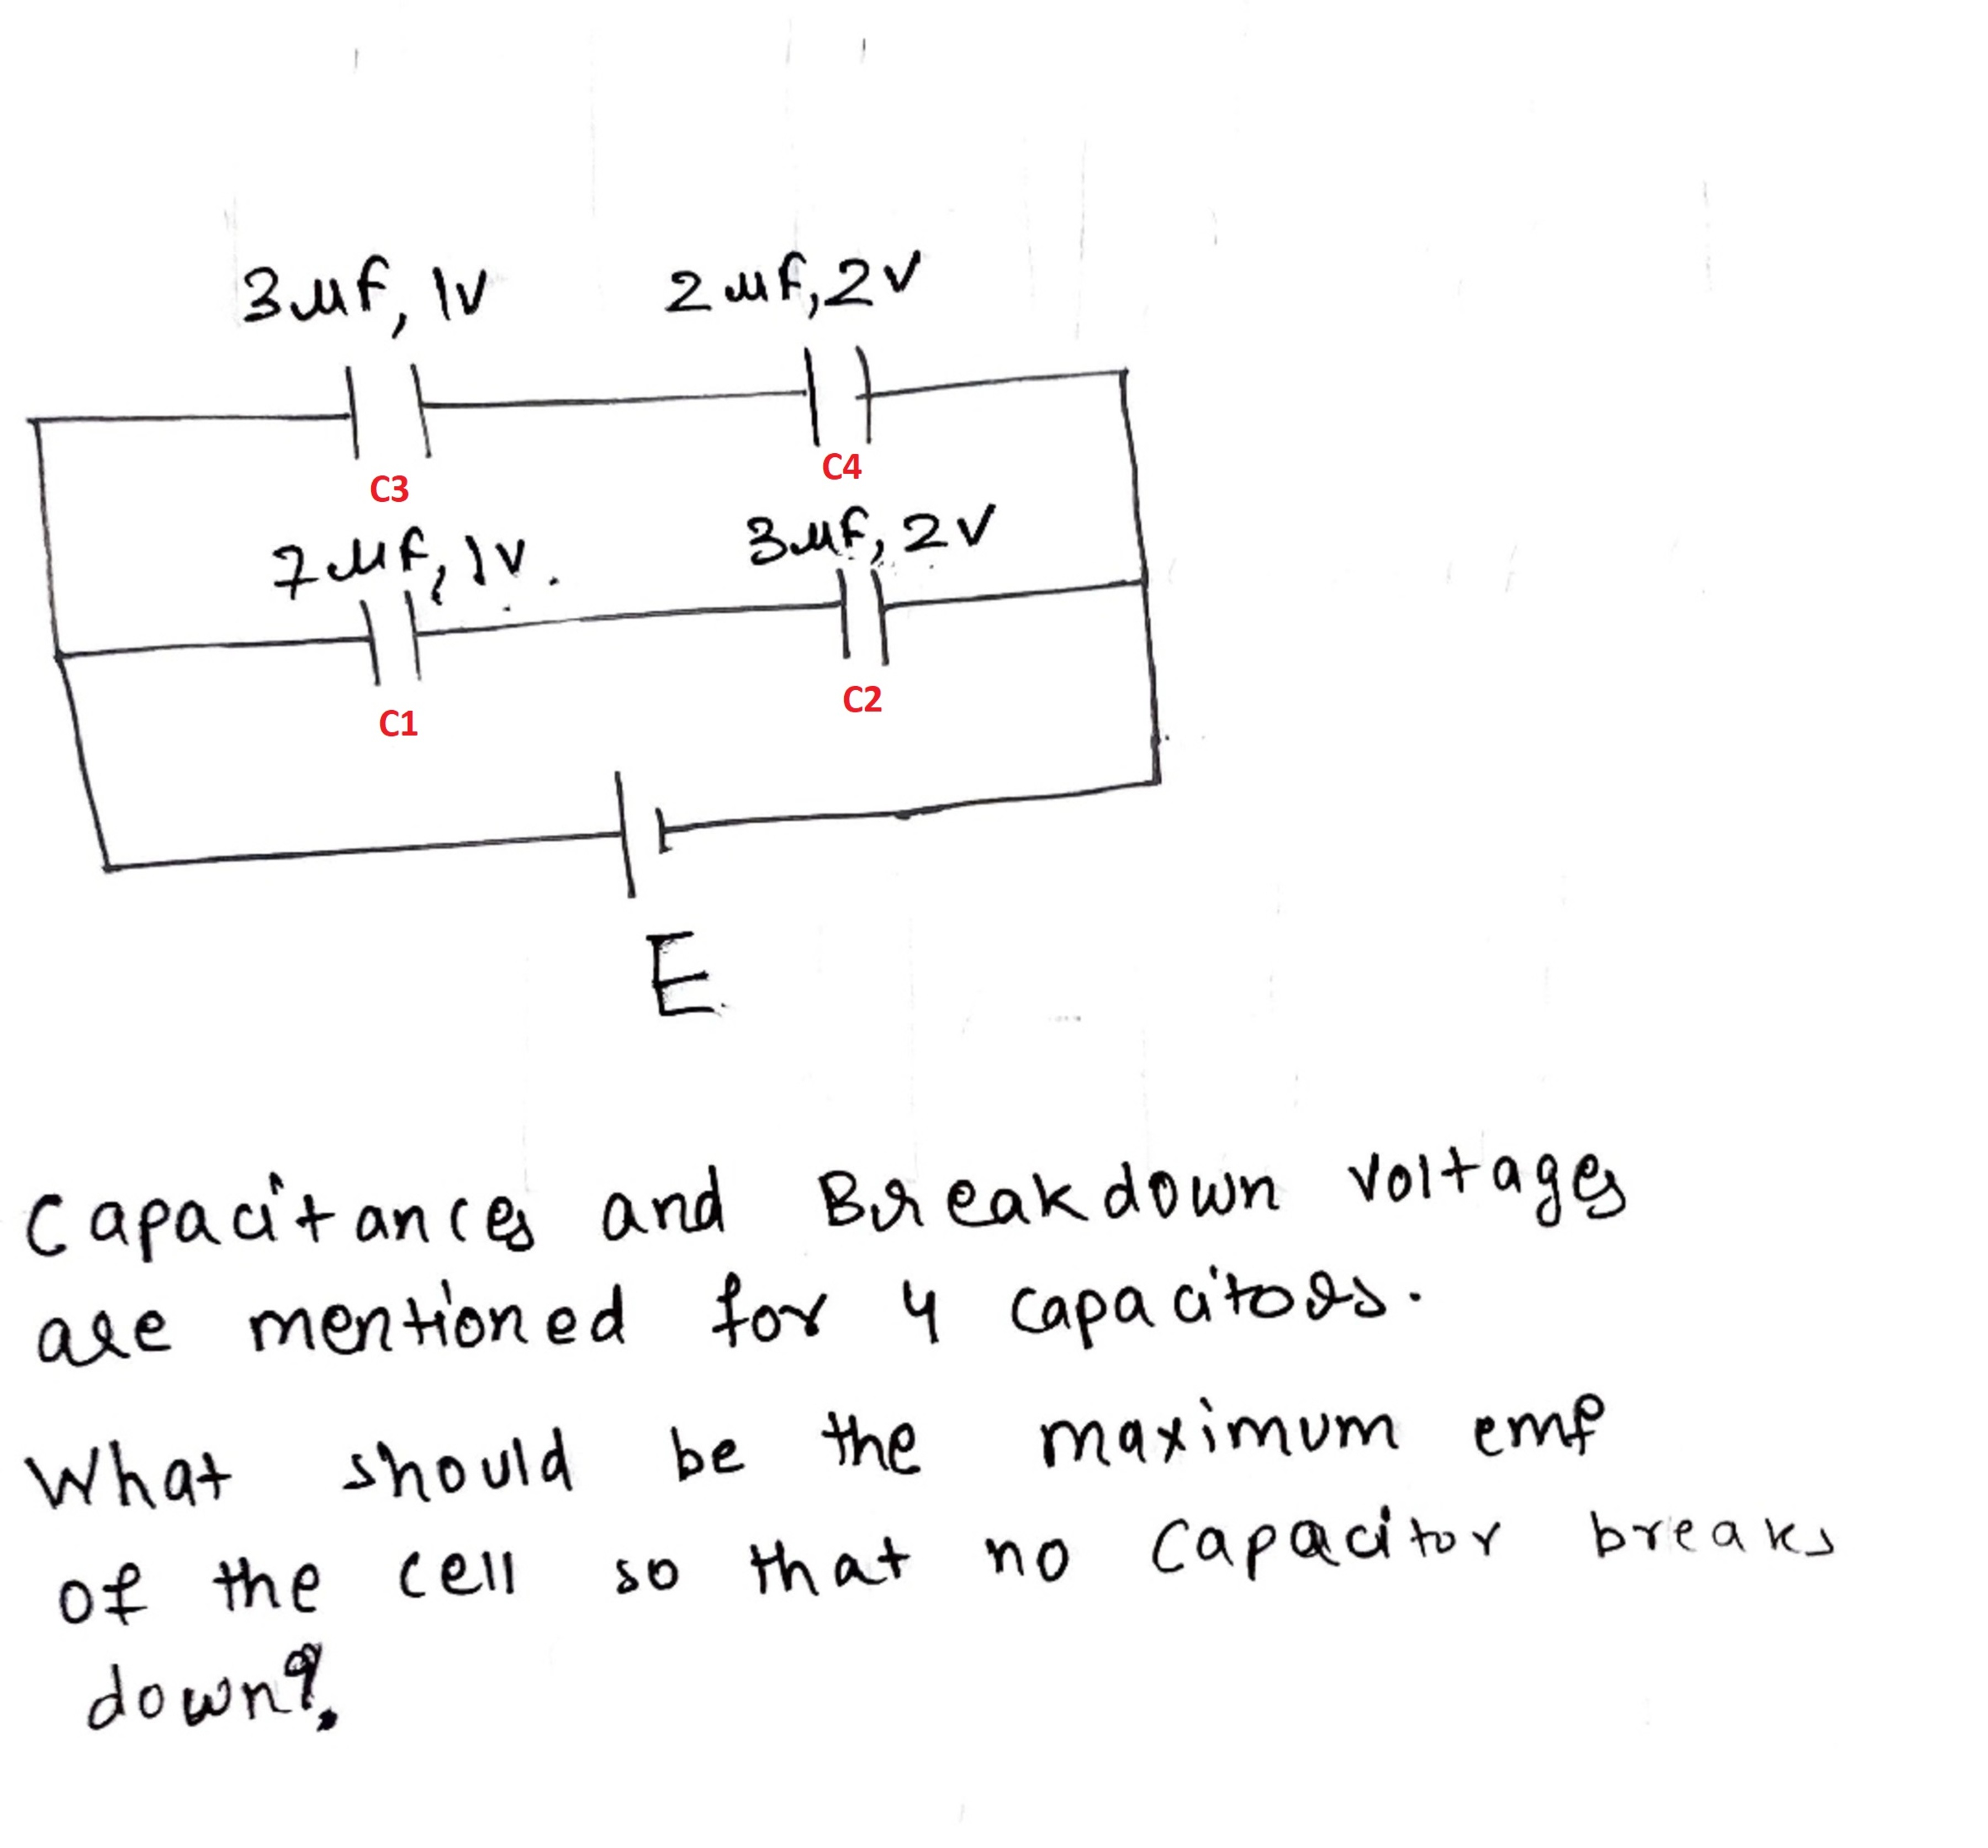 3μf, 1V 2μf, 2V
C3 C4
7μf, 1V. 3μf, 2V
C1 C2
E
Capacitances and Breakdown voltages
are mentioned for 4 capacitors.
What should be the maximum emf
of the cell so that no capacitor breaks
down?